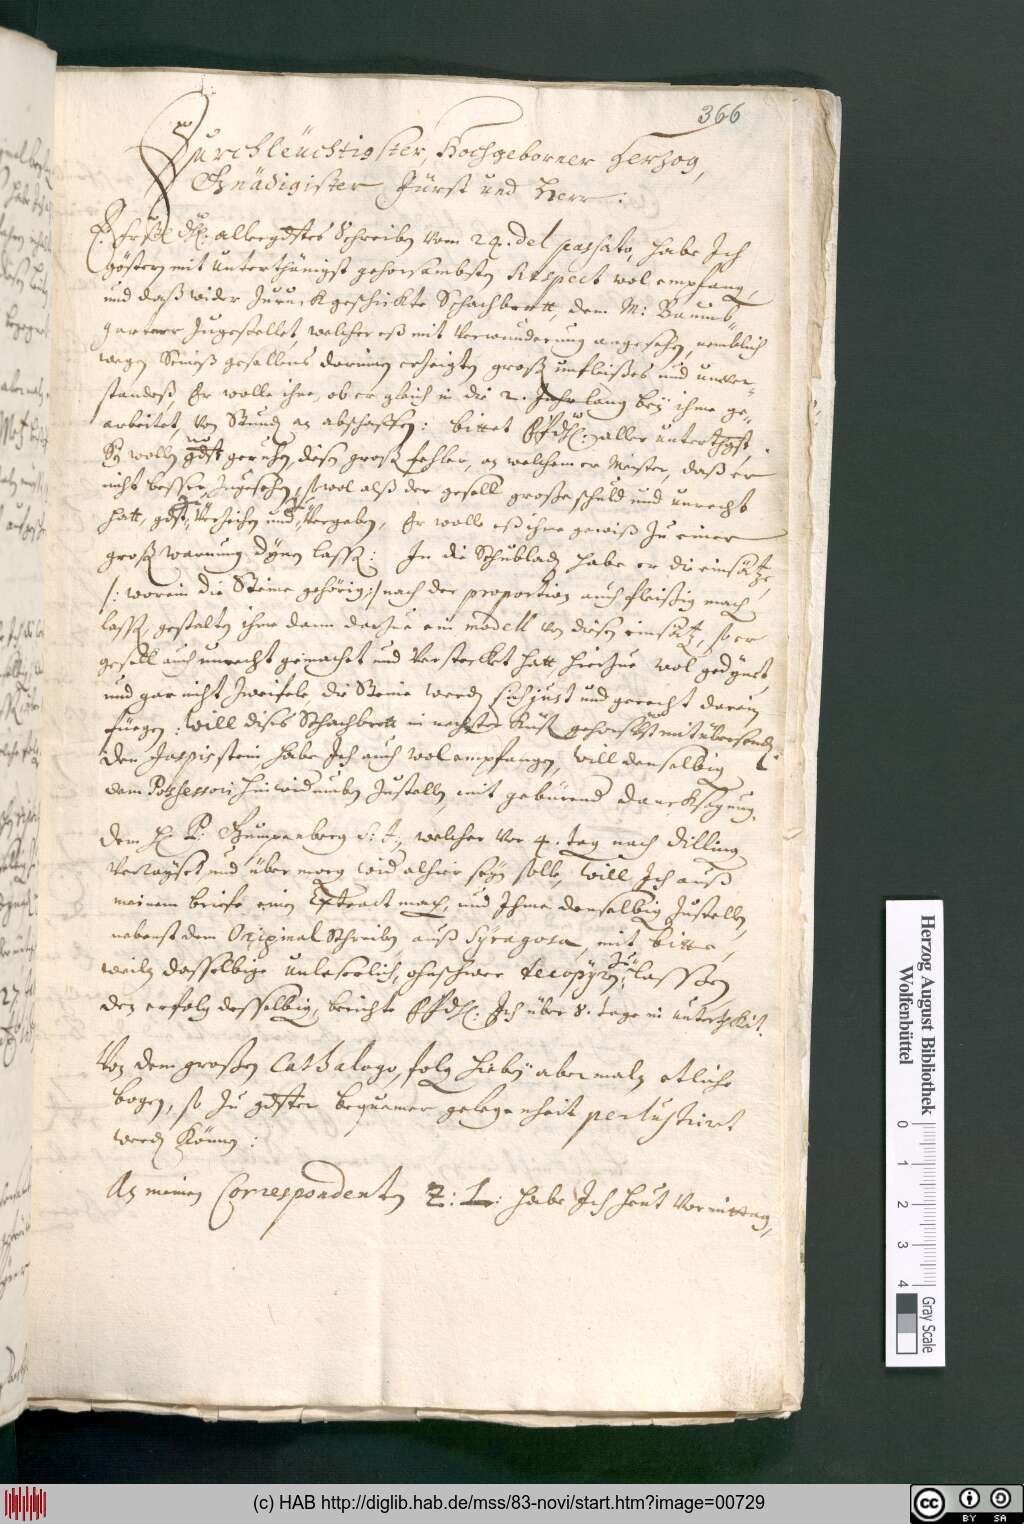 366
Durchleüchtigster, Hochgeborner Herzog,
Gnädigister Fürst und Herr:
E. frstl. dhl: allergdstes Schreiben vom 24. del passato, habe Ich
göstern mit unterthänigst gehorsambsten Respect wol empfang,
und daß wider Zuruck geschickte Schachbrett, dem M: Baum-
gartner Zugestellet, welcher eß mit Verwunderung angesehen, nemblich
wegen Seines gesellens darinen erzeigten groß unfleißes und unver-
standeß, Er wolle ihne, ob er gleich in die 2. Jahr lang bey ihme ge-
arbeitet, von Stund an abschaffen: bittet E F dhl: aller unterthgst,
Sy wollen gdst geruhen, disen groß fehler, an welchem er Meister, daß er
nicht besser Zugesehen, sowol alß der gesell große schuld und unrecht
hatt, gdst: Zu Verzeihen und Zu Vergeben, Er wolle eß ihme gewiß Zu einer
groß warnung dynen lassen: In die Schubladen habe er die einsätz,
/: worein die Steine gehörig :/ nach der proportion auch fleißig machen
lassen, gestalten ihme dann darzue ein modell von disen einsätz, so er
gesell auch unrecht gemachet und Versteckt hatt, hierzue wol gedynet,
und gar nicht Zweifele die Steine werden sich just und gerecht darein
füegen: Will dises Schachbrett in nechster Kist gehorsbst mit übersenden.
Den Jaspisstein habe Ich auch wol empfangen, will denselbig
dem Possessori hinwiderumben Zustellen, mit gebürend dancksagung.
Dem H. P: Gumpenberg S: J:, welcher vor 4. tag nach Dilling
Verrayset und über morg wider alhier seyn solle, will Ich auß
meinem briefe einen Extract machen, und Ihme denselbig Zustellen,
nebenst dem Original Schreiben auß Syragosa, mit bitte,
weiln dasselbige unleserlich, ohnschwer decopyren Zu lassen
den erfolg desselbig, berichte E F dhl: Ich über 8. tage in unterthkeit.
Von dem großen Cathalogo, folg hirbey abermaln etliche
bogen, so Zu gdster bequemer gelegenheit perlustriret
werden können:
An meinen Correspondenten Z: L: habe Ich heut Vormittag,
Herzog August Bibliothek
Wolfenbüttel
0 1 2 3 4
Gray Scale
(c) HAB http://diglib.hab.de/mss/83-novi/start.htm?image=00729
cc BY SA